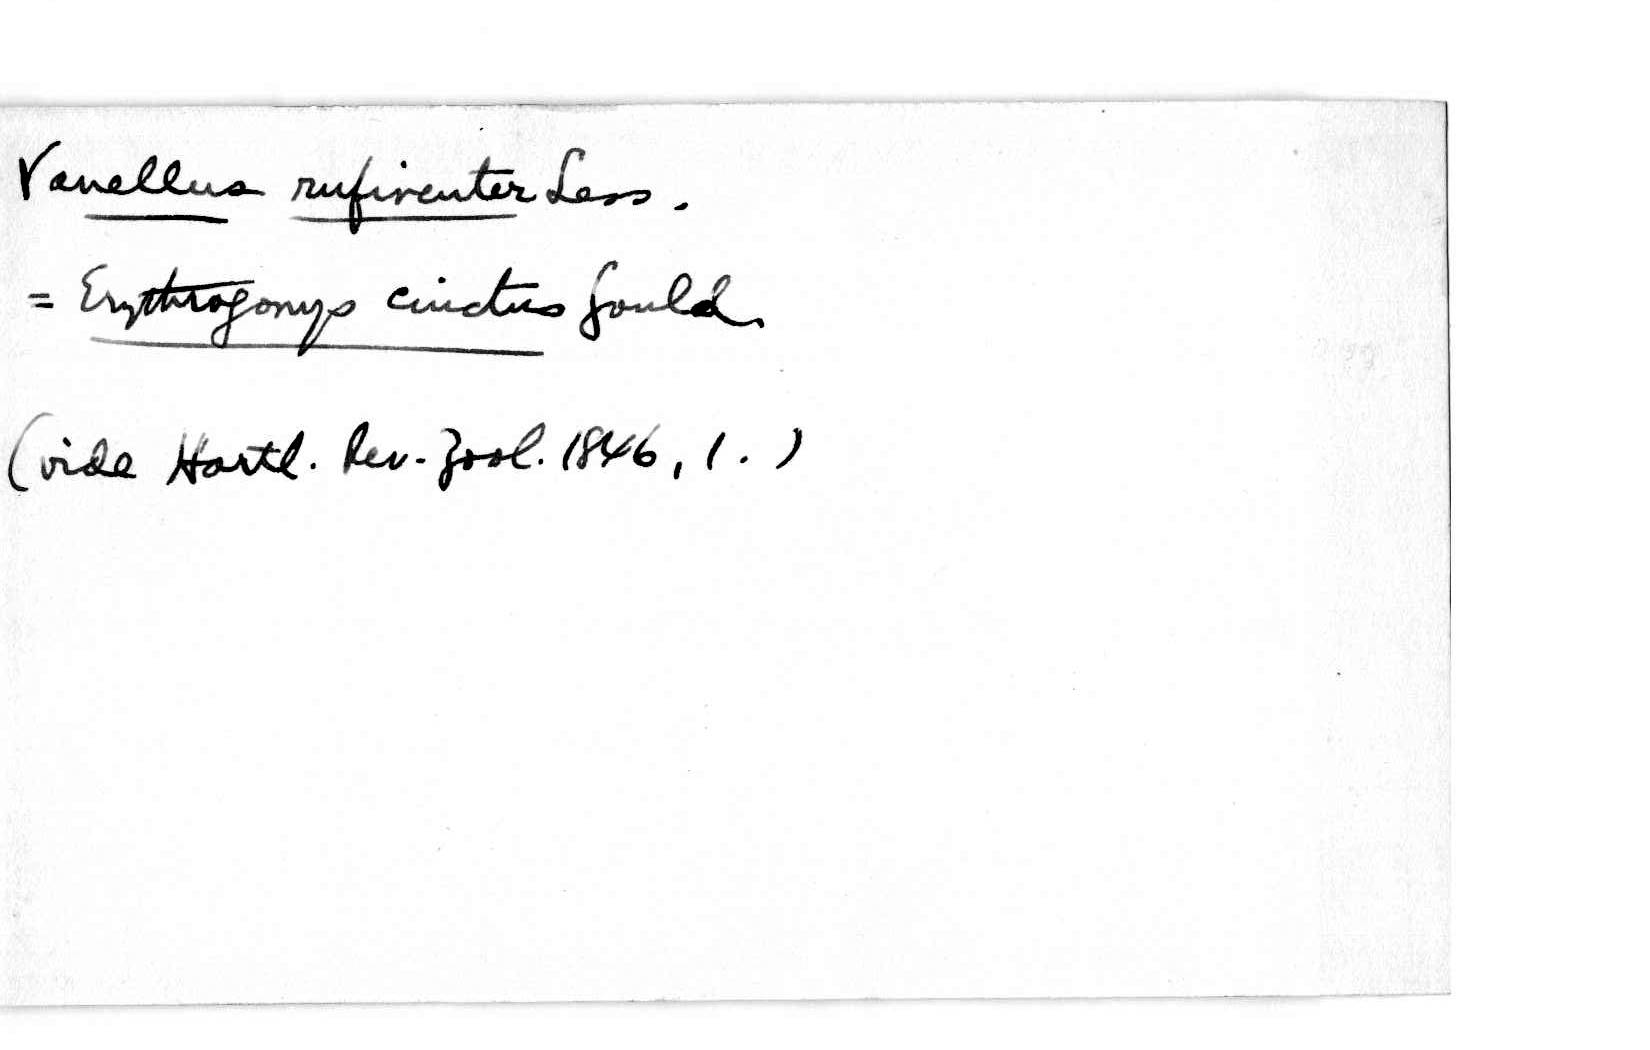 Vanellus rufiventer Less.
= Erythrogonys cinctus Gould.
(vide Hartl. Rev. Zool. 1846, 1.)